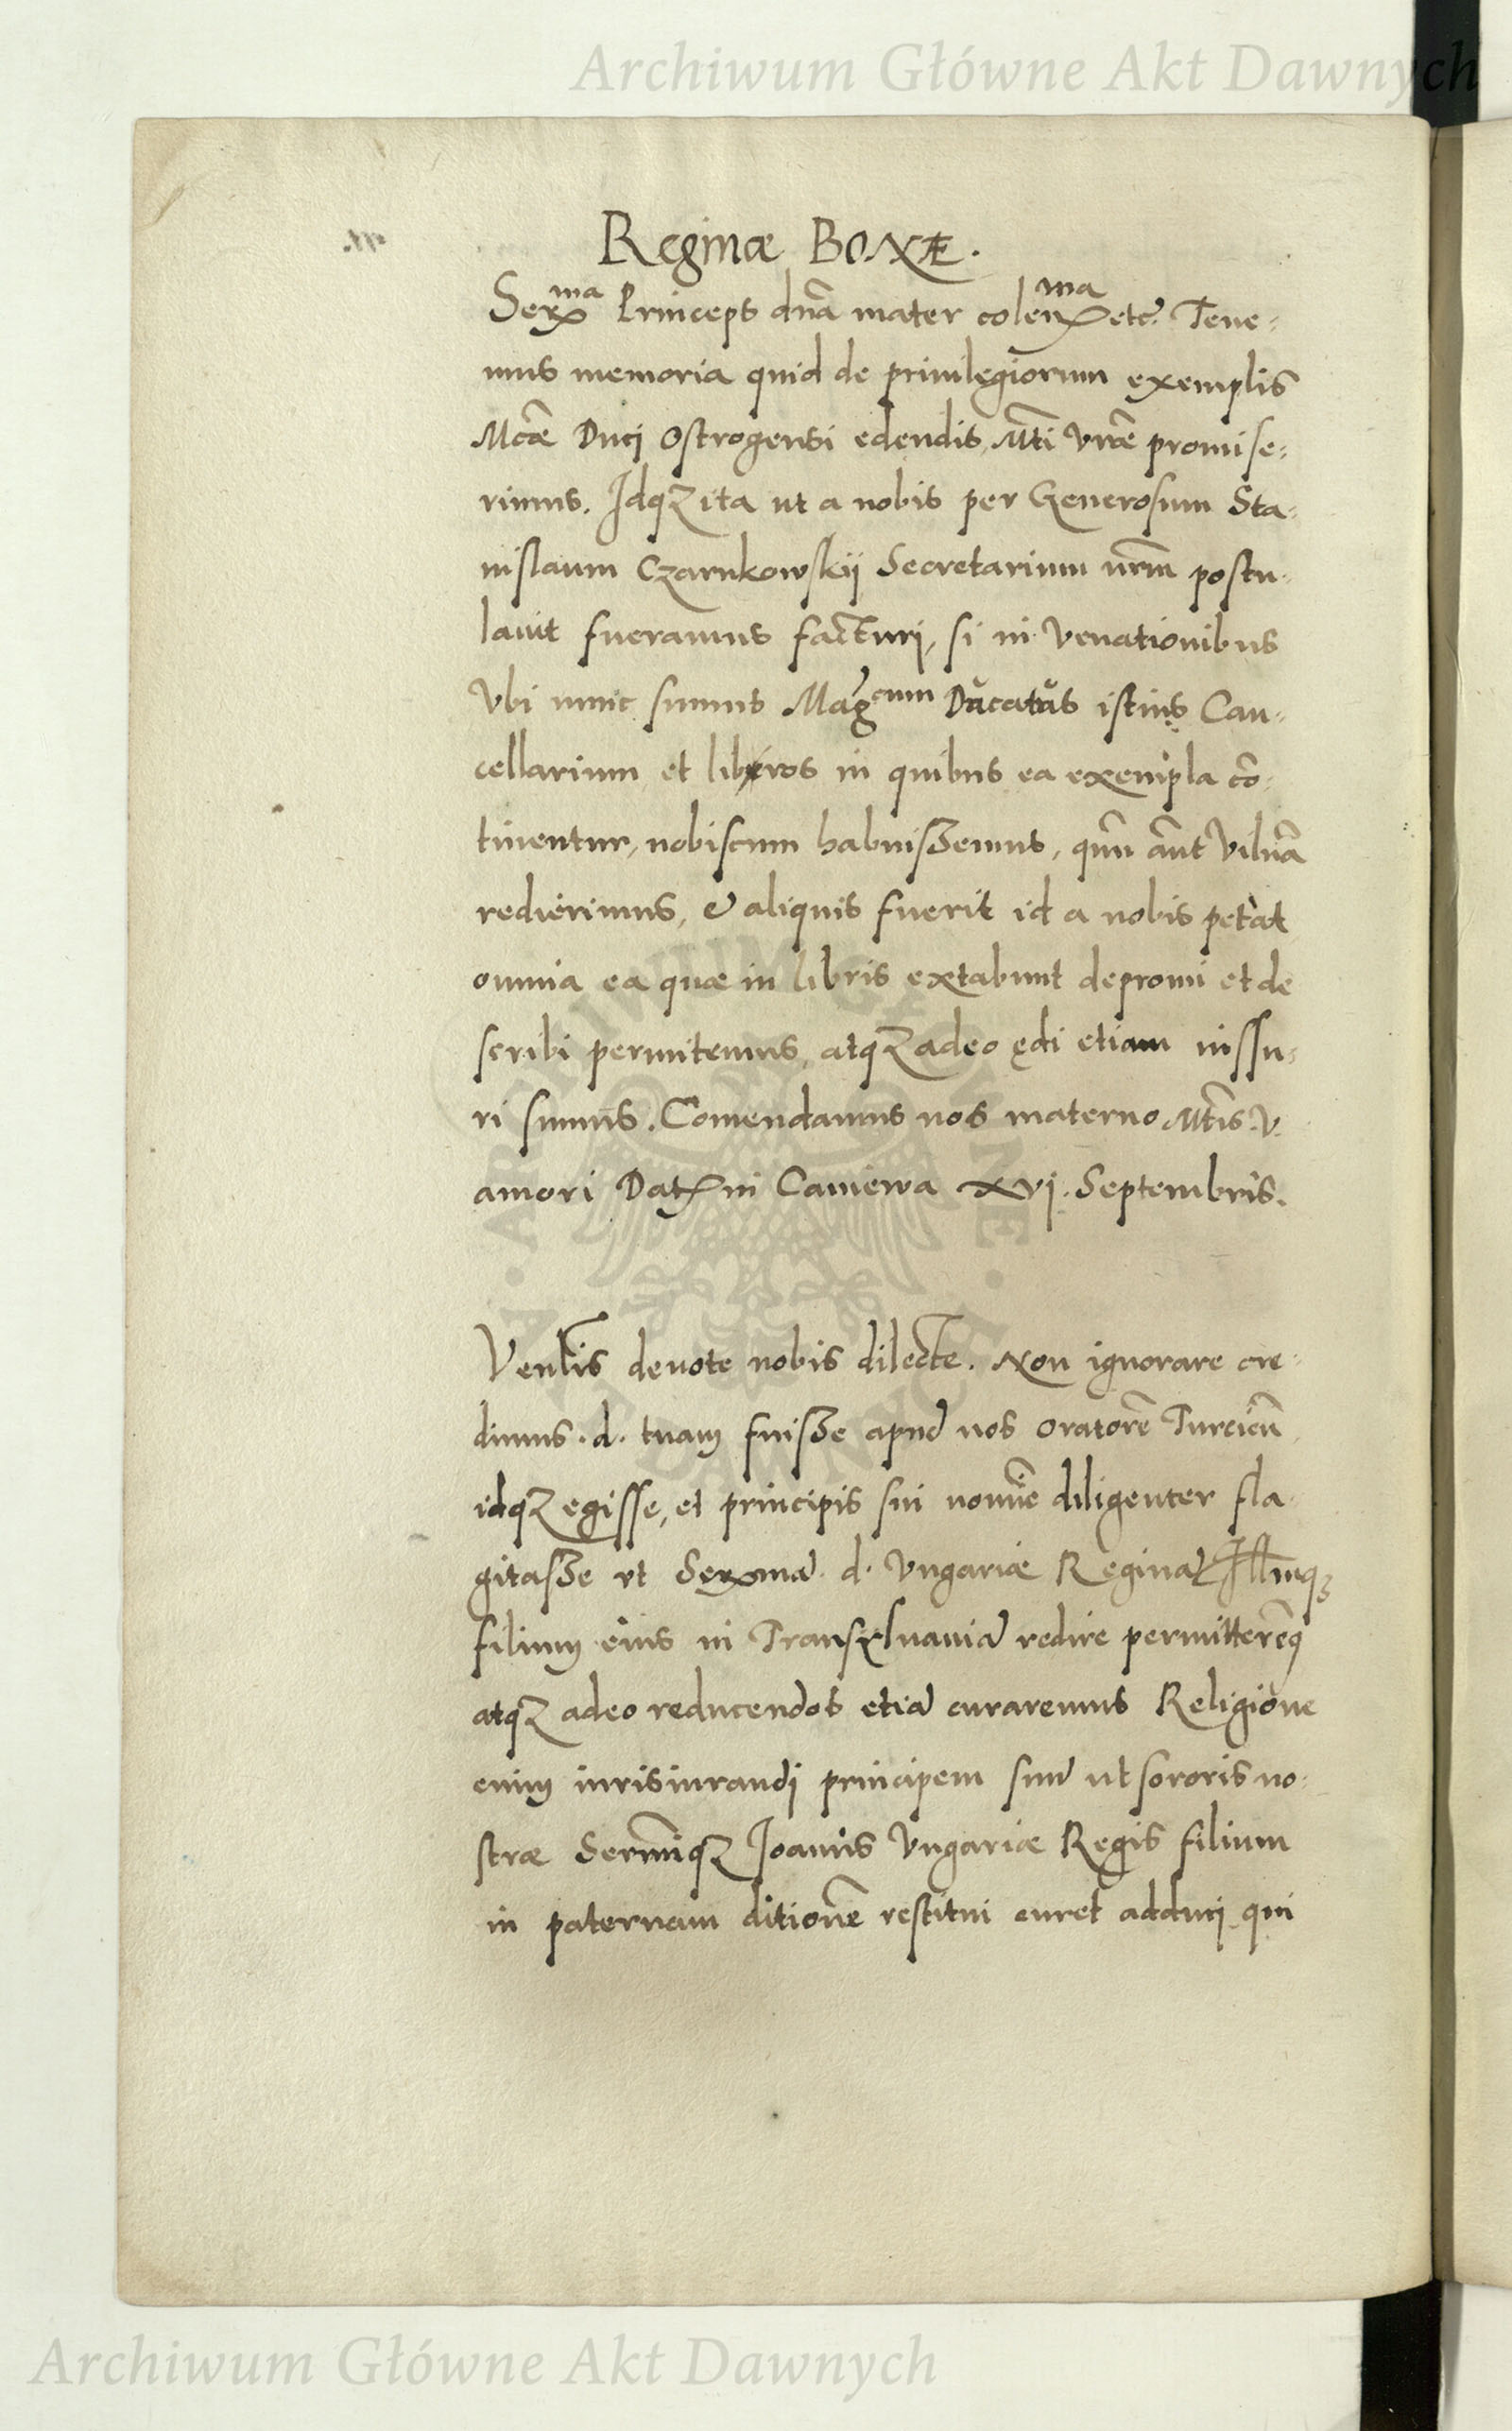 Archiwum Główne Akt Dawnych
Reginæ BONÆ.
Serma Princeps dnã mater colenma etc. Tene-
mus memoria quid de priuilegiorum exemplis
Mcæ Duci Ostrogensi edendis, Mti Vræ promise-
rimus. Idqz ita ut a nobis per Generosum Sta-
nislaum Czarnkowskij Secretarium nrm̃ postu-
lauit fueramus facturj, si in venationibus
Vbi nunc sumus Mag.cum Ducatus istius Can-
cellarium et libros in quibus ea exempla cõ-
tinentur, nobiscum habuissemus, qũn aũt Vilnã
redierimus, & aliquis fuerit id a nobis petat
omnia ea quæ in libris extabunt depromi et de
scribi permitemus, atqz adeo ędi etiam iussu-
ri sumus. Comendamus nos materno Mtis. V.
amori Dat in Caniewa xvj. Septembris.
Venlis deuote nobis dilecte. Non ignorare cre-
dimus. d. tuam fuisse apud nos oratorẽ Turcicũ
idqz egisse, et principis sui nomĩe diligenter fla-
gitasse vt Serma. d. Vngariæ Reginã Illmqz
filium eius in Transyluaniã redire permitteremq
atqz adeo reducendos etiã curaremus Religione
enim iurisiurandi principem suũ ut sororis no-
stræ Sermiqz Joannis Vngariæ Regis filium
in paternam ditionẽ restitui curet adducj qui
Archiwum Główne Akt Dawnych